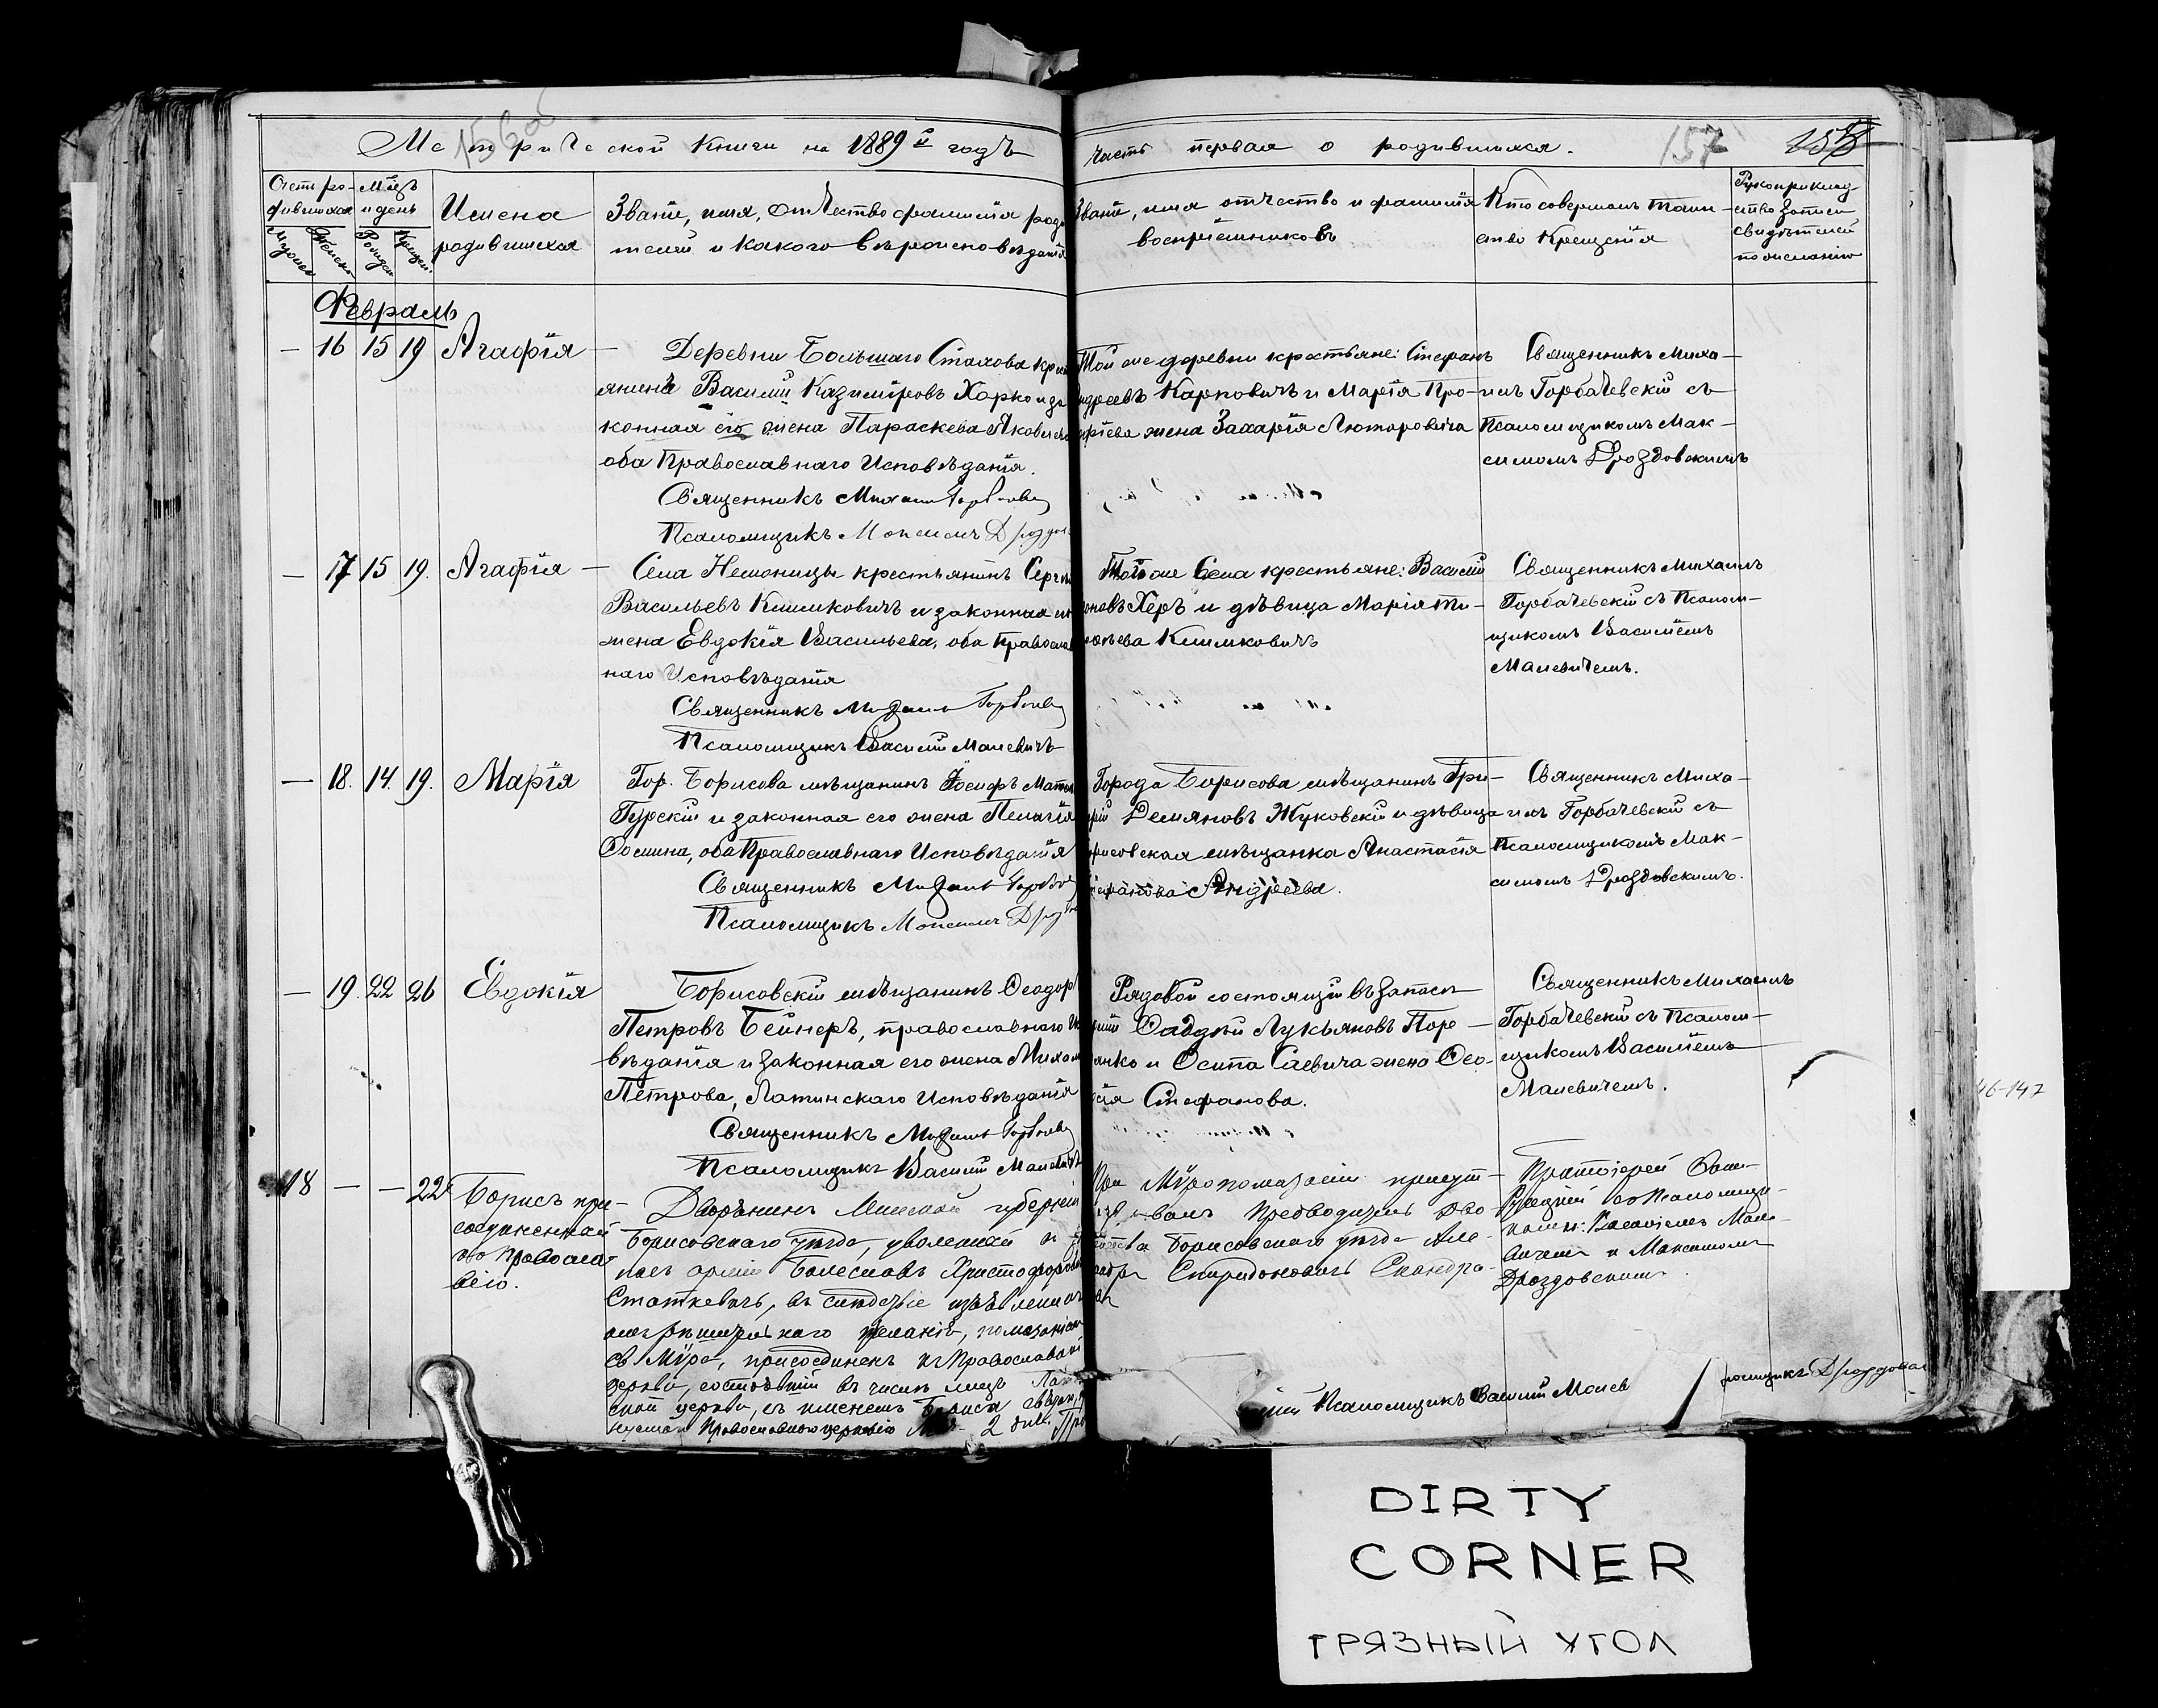 Метрической книги на 1889й годъ
часть первая о родившихся.
157
Счетъ ро-
дившихся
Мужеск
Женск
Мѣсъ
и день
Рожден
Крещен
Имена
родившихся
Званіе, имя, отчество фамилія роди
телей и какого вѣроисповѣданія
Званіе, имя отчество и фамилія
воспріемниковъ
Кто совершалъ таин-
ство Крещенія
Рукоприклад-
ство записи
свидѣтелей
по желанію
Февраль
— 16 15 19 Агафія —
Деревни Большаго Стахова крест
янинъ Василій Казиміровъ Харко и за
конная его жена Параскева Яковлева
оба Православнаго Исповѣданія.
Священникъ Михаилъ Горбачевс
Псаломщикъ Максимъ Дроздов
Той же деревни крестьяне: Стефанъ
ндреевъ Карповичъ и Марія Про-
офіева жена Захарія Лютаровича
Священникъ Миха-
илъ Горбачевскій съ
Псаломщикомъ Мак-
симомъ Дроздовскимъ
— 17 15 19. Агафія —
Села Неманицы крестьянинъ Сергій
Васильевъ Климковичъ и законная его
жена Евдокія Васильева, оба Православ
наго Исповѣданія
Священникъ Михаилъ Горбачевс
Псаломщикъ Василій Малевичъ
Того же Села крестьяне: Василій
оновъ Херъ и дѣвица Марія Ти-
офеева Климковичъ
Священникъ Михаилъ
Горбачевскій съ Псалом-
щикомъ Василіемъ
Малевичемъ.
— 18. 14. 19. Марія
Гор. Борисова мѣщанинъ Іосифъ
Гурскій и законная его жена Пелагія
Ѳомина, оба Православнаго Исповѣданія
Священникъ Михаилъ Горбаче
Псаломщикъ Максимъ Дрозд
Города Борисова мѣщанинъ Гри-
орій Демяновъ Жуковскій и дѣвица
орисовская мѣщанка Анастасія
тефанова Андреева.
Священникъ Миха-
илъ Горбачевскій съ
Псаломщикомъ Мак-
симомъ Дроздовскимъ.
— 19. 22 26 Евдокія
Борисовскій мѣщанинъ Ѳеодоръ
Петровъ Бейнеръ, православнаго Ис
вѣданія и законная его жена
Петрова, Латинскаго Исповѣданія
Священникъ Михаилъ Горбачевс
Псаломщикъ Василій Малевичъ
Рядовой состоящій въ запасѣ
Ѳаддѣй Лукьяновъ Поре-
янко и Осипа Саевича жена Ѳео-
сія Стефанова.
Священникъ Михаилъ
Горбачевскій съ Псалом-
щикомъ Василіемъ
Малевичемъ.
46-147
18 — — 22 Борисъ при-
соединенный
къ Правосла-
вію.
Дворянинъ Минской губерніи
Борисовскаго уѣзда, уволенный
арміи Болеславъ Христофоровъ
Статкевичъ, въ слѣдствіе
желанія, помазаніемъ
Св. Мѵра, присоединенъ къ Православной
церкви, состоявшій въ числѣ лицъ Лат
ской церкви, съ именемъ Бориса
Православною церковію 2 дня.
При Мѵропомазаніи присут-
ствовалъ Предводитель дво-
рянства Борисовскаго уѣзда Але-
ксандръ Спиридоновичъ
Протоіерей
съ Псаломщи-
ками: Василіемъ Мале-
вичемъ и Максимомъ
Дроздовскимъ.
Псаломщикъ Василій Малев
ломщикъ Дроздовск
DIRTY
CORNER
ГРЯЗНЫЙ УГОЛ